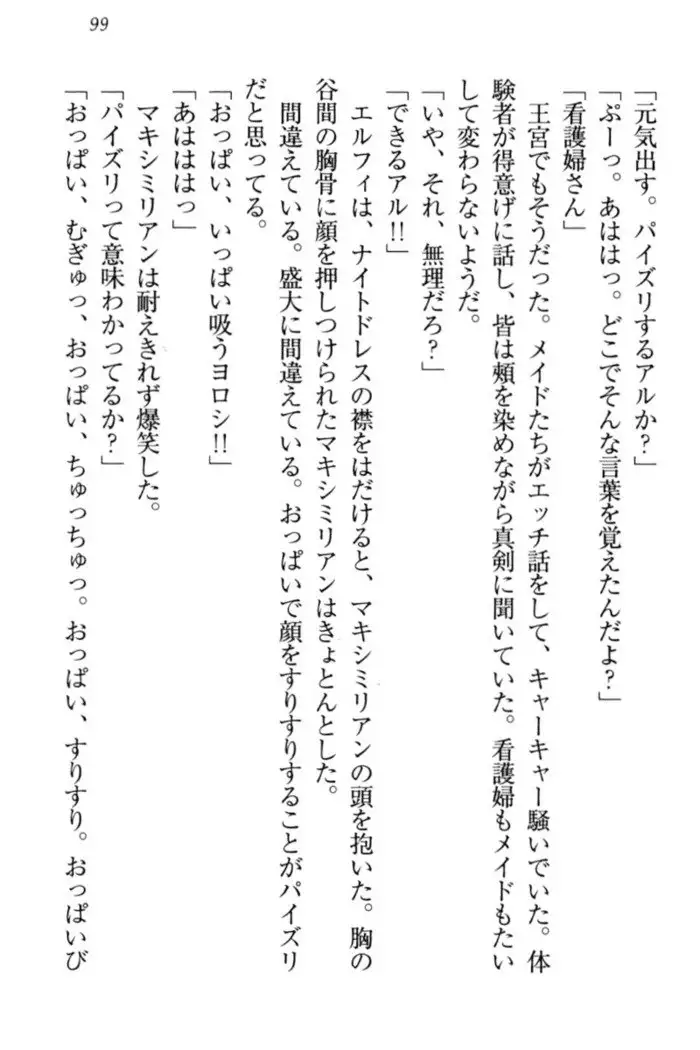 99
「元気出す。パイズリするアルか？」
「ぷーっ。あははっ。どこでそんな言葉を覚えたんだよ？」
「看護婦さん」
　王宮でもそうだった。メイドたちがエッチ話をして、キャーキャー騒いでいた。体
験者が得意げに話し、皆は頬を染めながら真剣に聞いていた。看護婦もメイドもたい
して変わらないようだ。
「いや、それ、無理だろ？」
「できるアル!!」
　エルフィは、ナイトドレスの襟をはだけると、マキシミリアンの頭を抱いた。胸の
谷間の胸骨に顔を押しつけられたマキシミリアンはきょとんとした。
　間違えている。盛大に間違えている。おっぱいで顔をすりすりすることがパイズリ
だと思ってる。
「おっぱい、いっぱい吸うヨロシ!!」
「あはははっ」
　マキシミリアンは耐えきれず爆笑した。
「パイズリって意味わかってるか？」
「おっぱい、むぎゅっ、おっぱい、ちゅっちゅっ。おっぱい、すりすり。おっぱいび